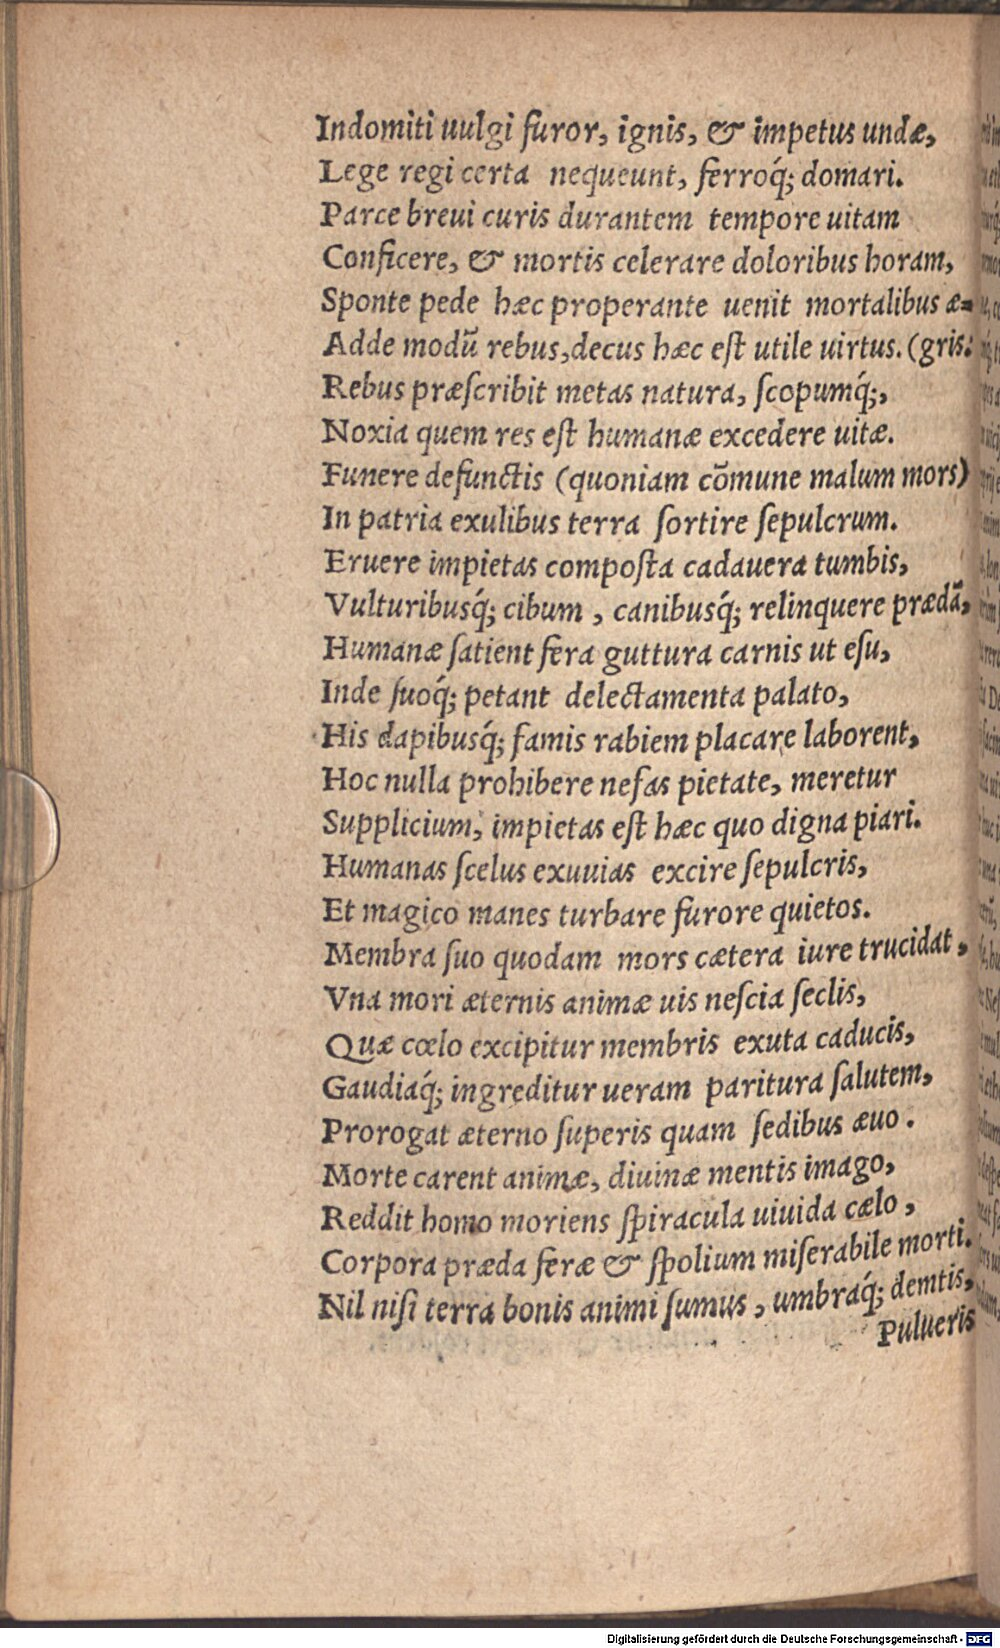 Indomiti uulgi furor, ignis, & impetus undæ,
Lege regi certa nequeunt, ferroq́; domari.
Parce breui curis durantem tempore uitam
Conficere, & mortis celerare doloribus horam,
Sponte pede hæc properante uenit mortalibus æ-
Adde modū rebus, decus hæc eſt utile uirtus. (gris:
Rebus præſcribit metas natura, ſcopumq́;,
Noxia quem res eſt humanæ excedere uitæ.
Funere defunctis (quoniam cōmune malum mors)
In patria exulibus terra ſortire ſepulcrum.
Eruere impietas compoſta cadauera tumbis,
Vulturibusq́; cibum, canibusq́; relinquere prædā,
Humanæ ſatient fera guttura carnis ut eſu,
Inde ſuoq́; petant delectamenta palato,
His dapibusq́; famis rabiem placare laborent,
Hoc nulla prohibere nefas pietate, meretur
Supplicium, impietas eſt hæc quo digna piari.
Humanas ſcelus exuuias excire ſepulcris,
Et magico manes turbare furore quietos.
Membra ſuo quodam mors cætera iure trucidat,
Vna mori æternis animæ uis neſcia ſeclis,
Quæ cœlo excipitur membris exuta caducis,
Gaudiaq́; ingreditur ueram paritura ſalutem,
Prorogat æterno ſuperis quam ſedibus æuo.
Morte carent animæ, diuinæ mentis imago,
Reddit homo moriens ſpiracula uiuida cælo,
Corpora præda feræ & ſpolium miſerabile morti.
Nil niſi terra bonis animi ſumus, umbraq́; demtis,
Pulueris
Digitalisierung gefördert durch die Deutsche Forschungsgemeinschaft - DFG